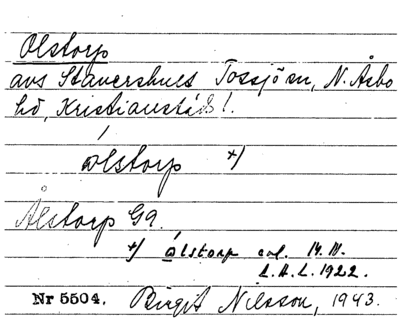 Olstorp
avs Stavershult, Tossjö sn, N. Åsbo
hd, Kristianstads l.
ålstorp x/
Ålstorp G9.
x/ ålstorp col. 14. III.
L.A.L. 1922.
Nr 5504. Birgit Nilsson, 1943.